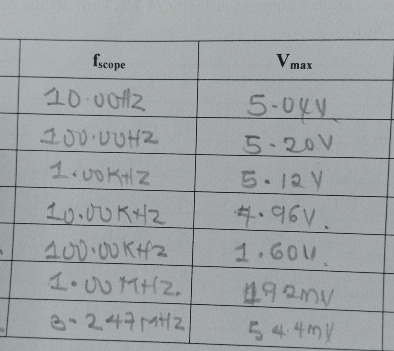 f scope V max
10.00Hz 5.04V
100.00Hz 5.20V
1.00KHz 5.12V
10.00KHz 4.96V.
100.00KHz 1.60V.
1.00MHz. 192mV
3.247MHz 54.4mV